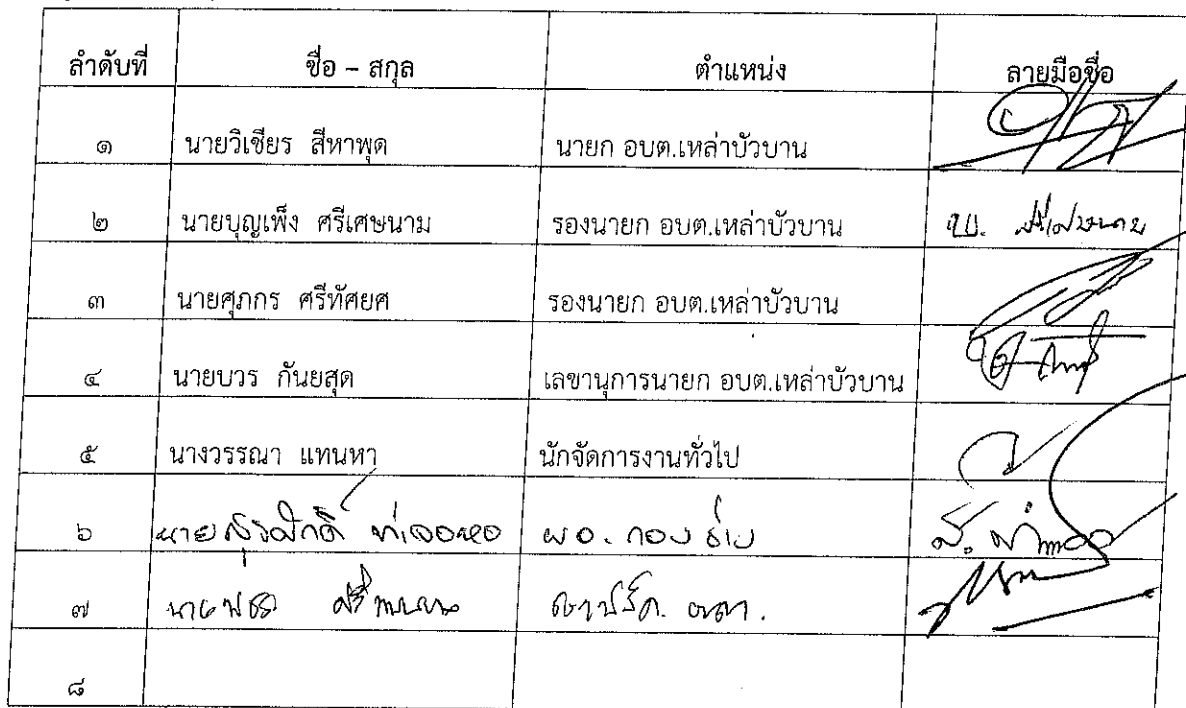 ลำดับที่ ชื่อ – สกุล ตำแหน่ง ลายมือชื่อ
๑ นายวิเชียร สีหาพุด นายก อบต.เหล่าบัวบาน
๒ นายบุญเพ็ง ศรีเศษนาม รองนายก อบต.เหล่าบัวบาน
๓ นายศุภกร ศรีทัศยศ รองนายก อบต.เหล่าบัวบาน
๔ นายบวร กันยสุด เลขานุการนายก อบต.เหล่าบัวบาน
๕ นางวรรณา แทนหา นักจัดการงานทั่วไป
๖ นายสุรศักดิ์ ผอ. กองช่าง
๗ นาย
๘